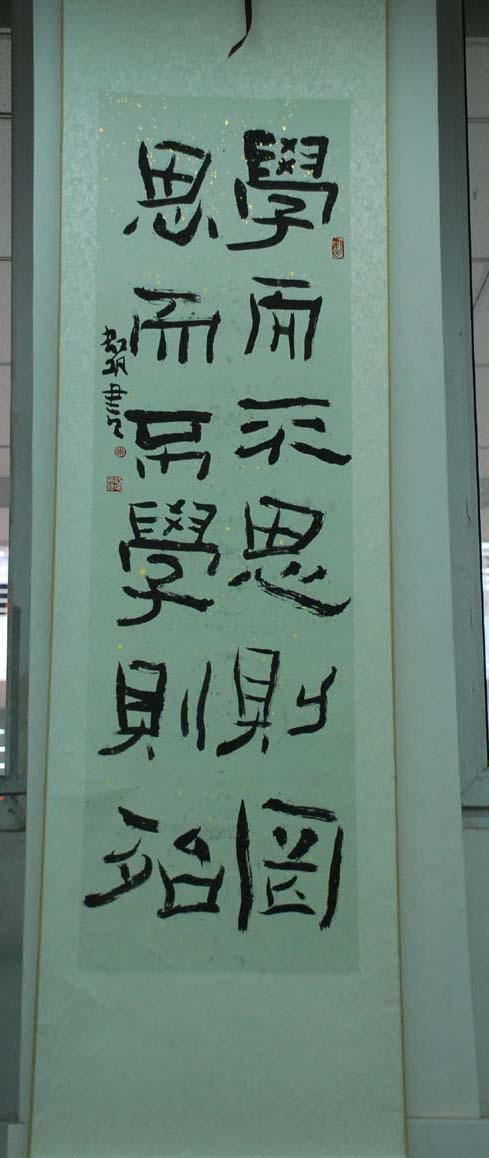 學而不思則罔
思而不學則殆
書